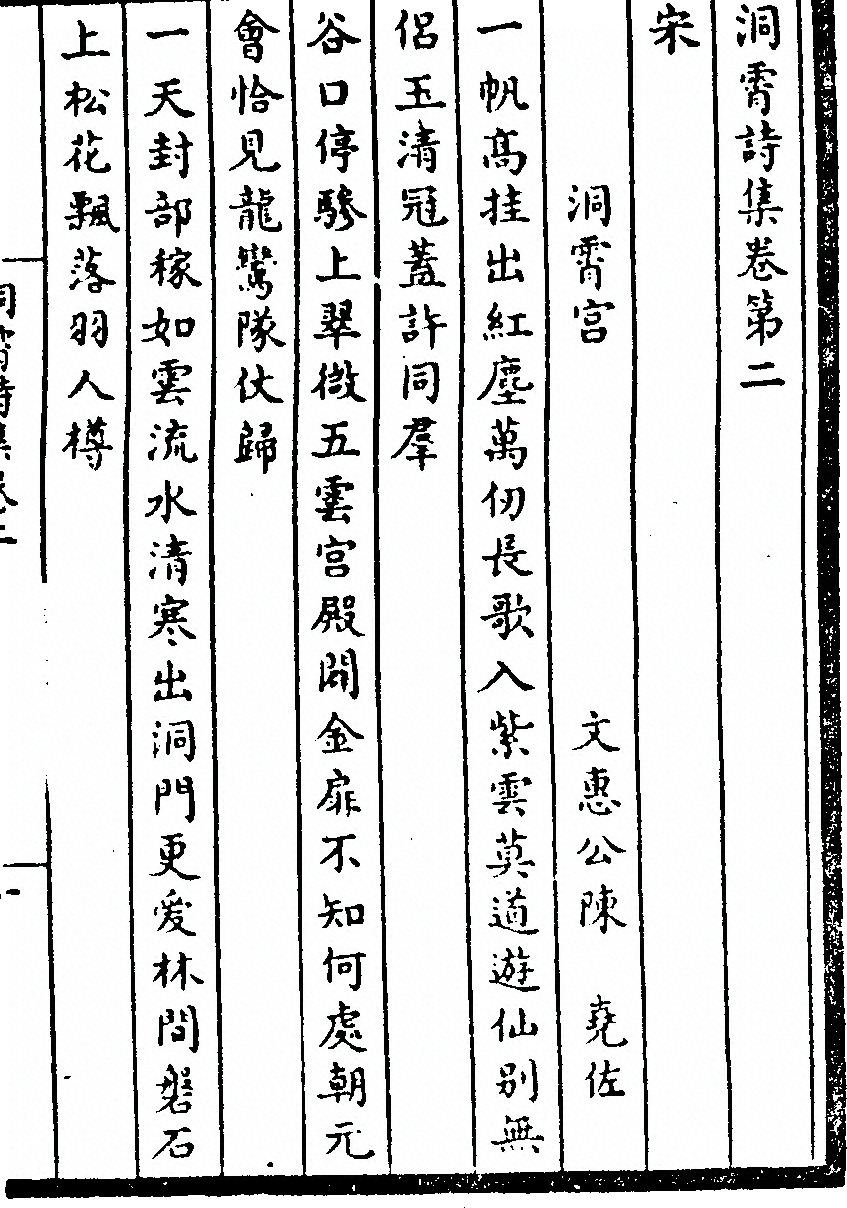 洞霄詩集卷第二
宋
洞霄宮 文惠公陳 堯佐
一帆髙挂出紅塵萬仞長歌入紫雲莫道遊仙别無
侶玉清冠蓋許同羣
谷口停驂上翠微五雲宮殿開金扉不知何處朝元
會恰見龍鸞隊仗歸
一天封部稼如雲流水清寒出洞門更愛林間磐石
上松花飄落羽人樽
洞霄詩集卷二